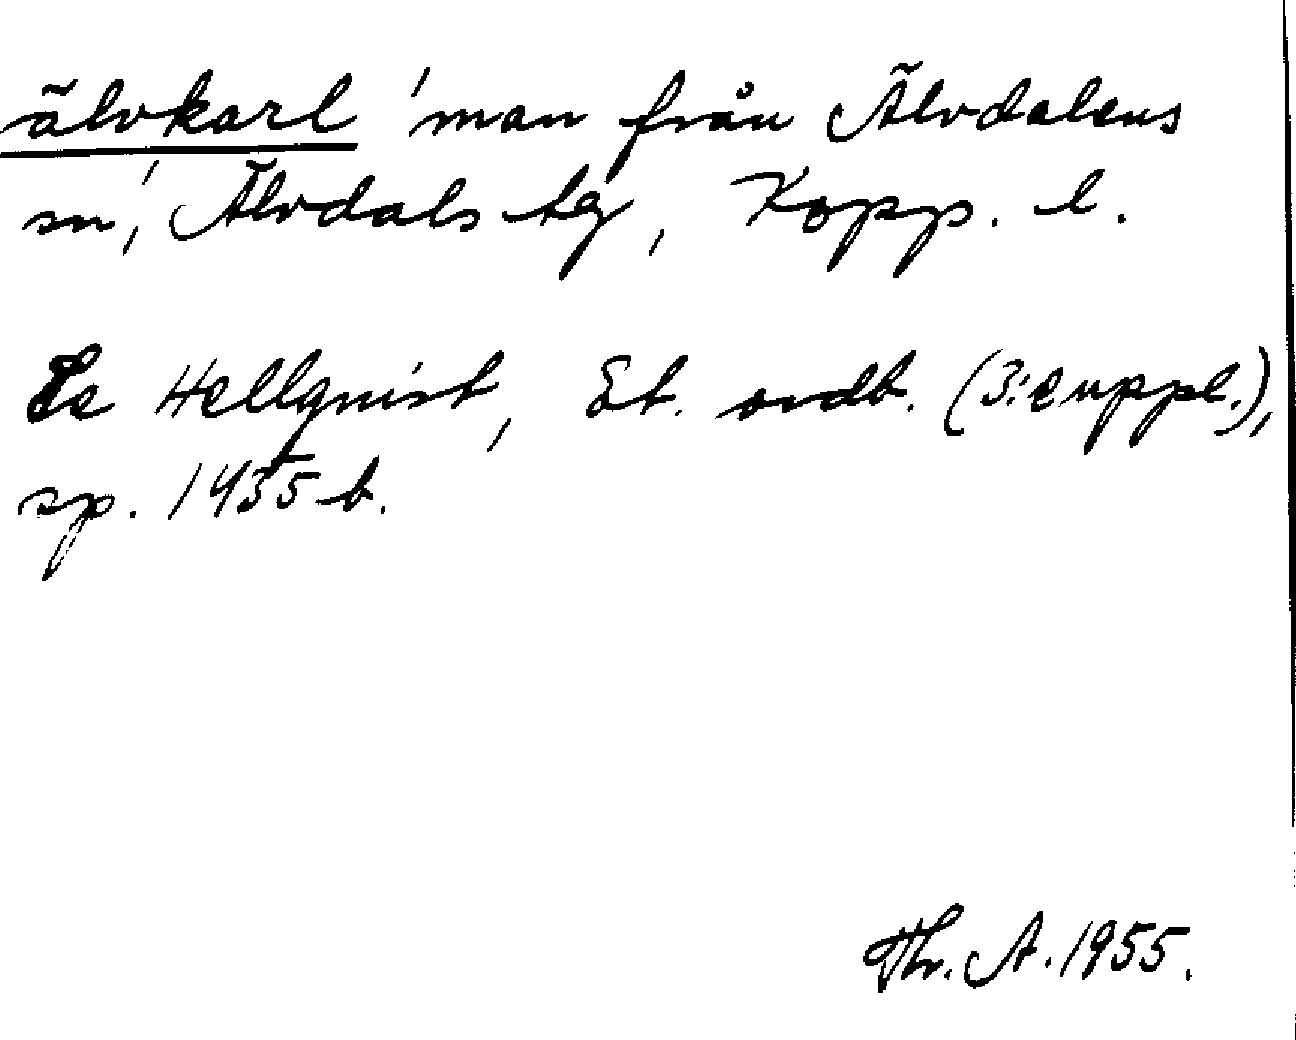 älvkarl 'man från Älvdalens
sn', Älvdals tg, Kopp. l.
Se Hellquist, Et. ordb. (3:e uppl.),
sp. 1435 b.
Thr. A. 1955.